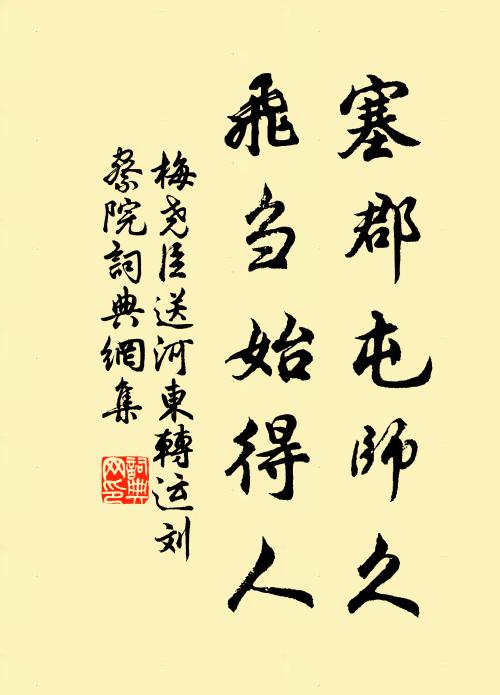 塞郡屯师久
飛刍始得人
梅尧臣送河東轉运刘
察院詞典網集
詞典网印